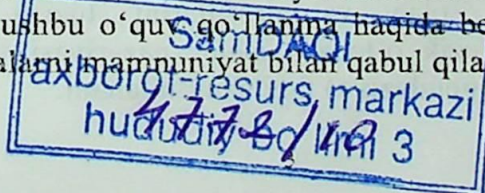 ushbu o‘quv qo‘llanma haqida
mamnuniyat bilan qabul
SamDAQI
axborot-resurs markazi
hududiy bo‘limi 3